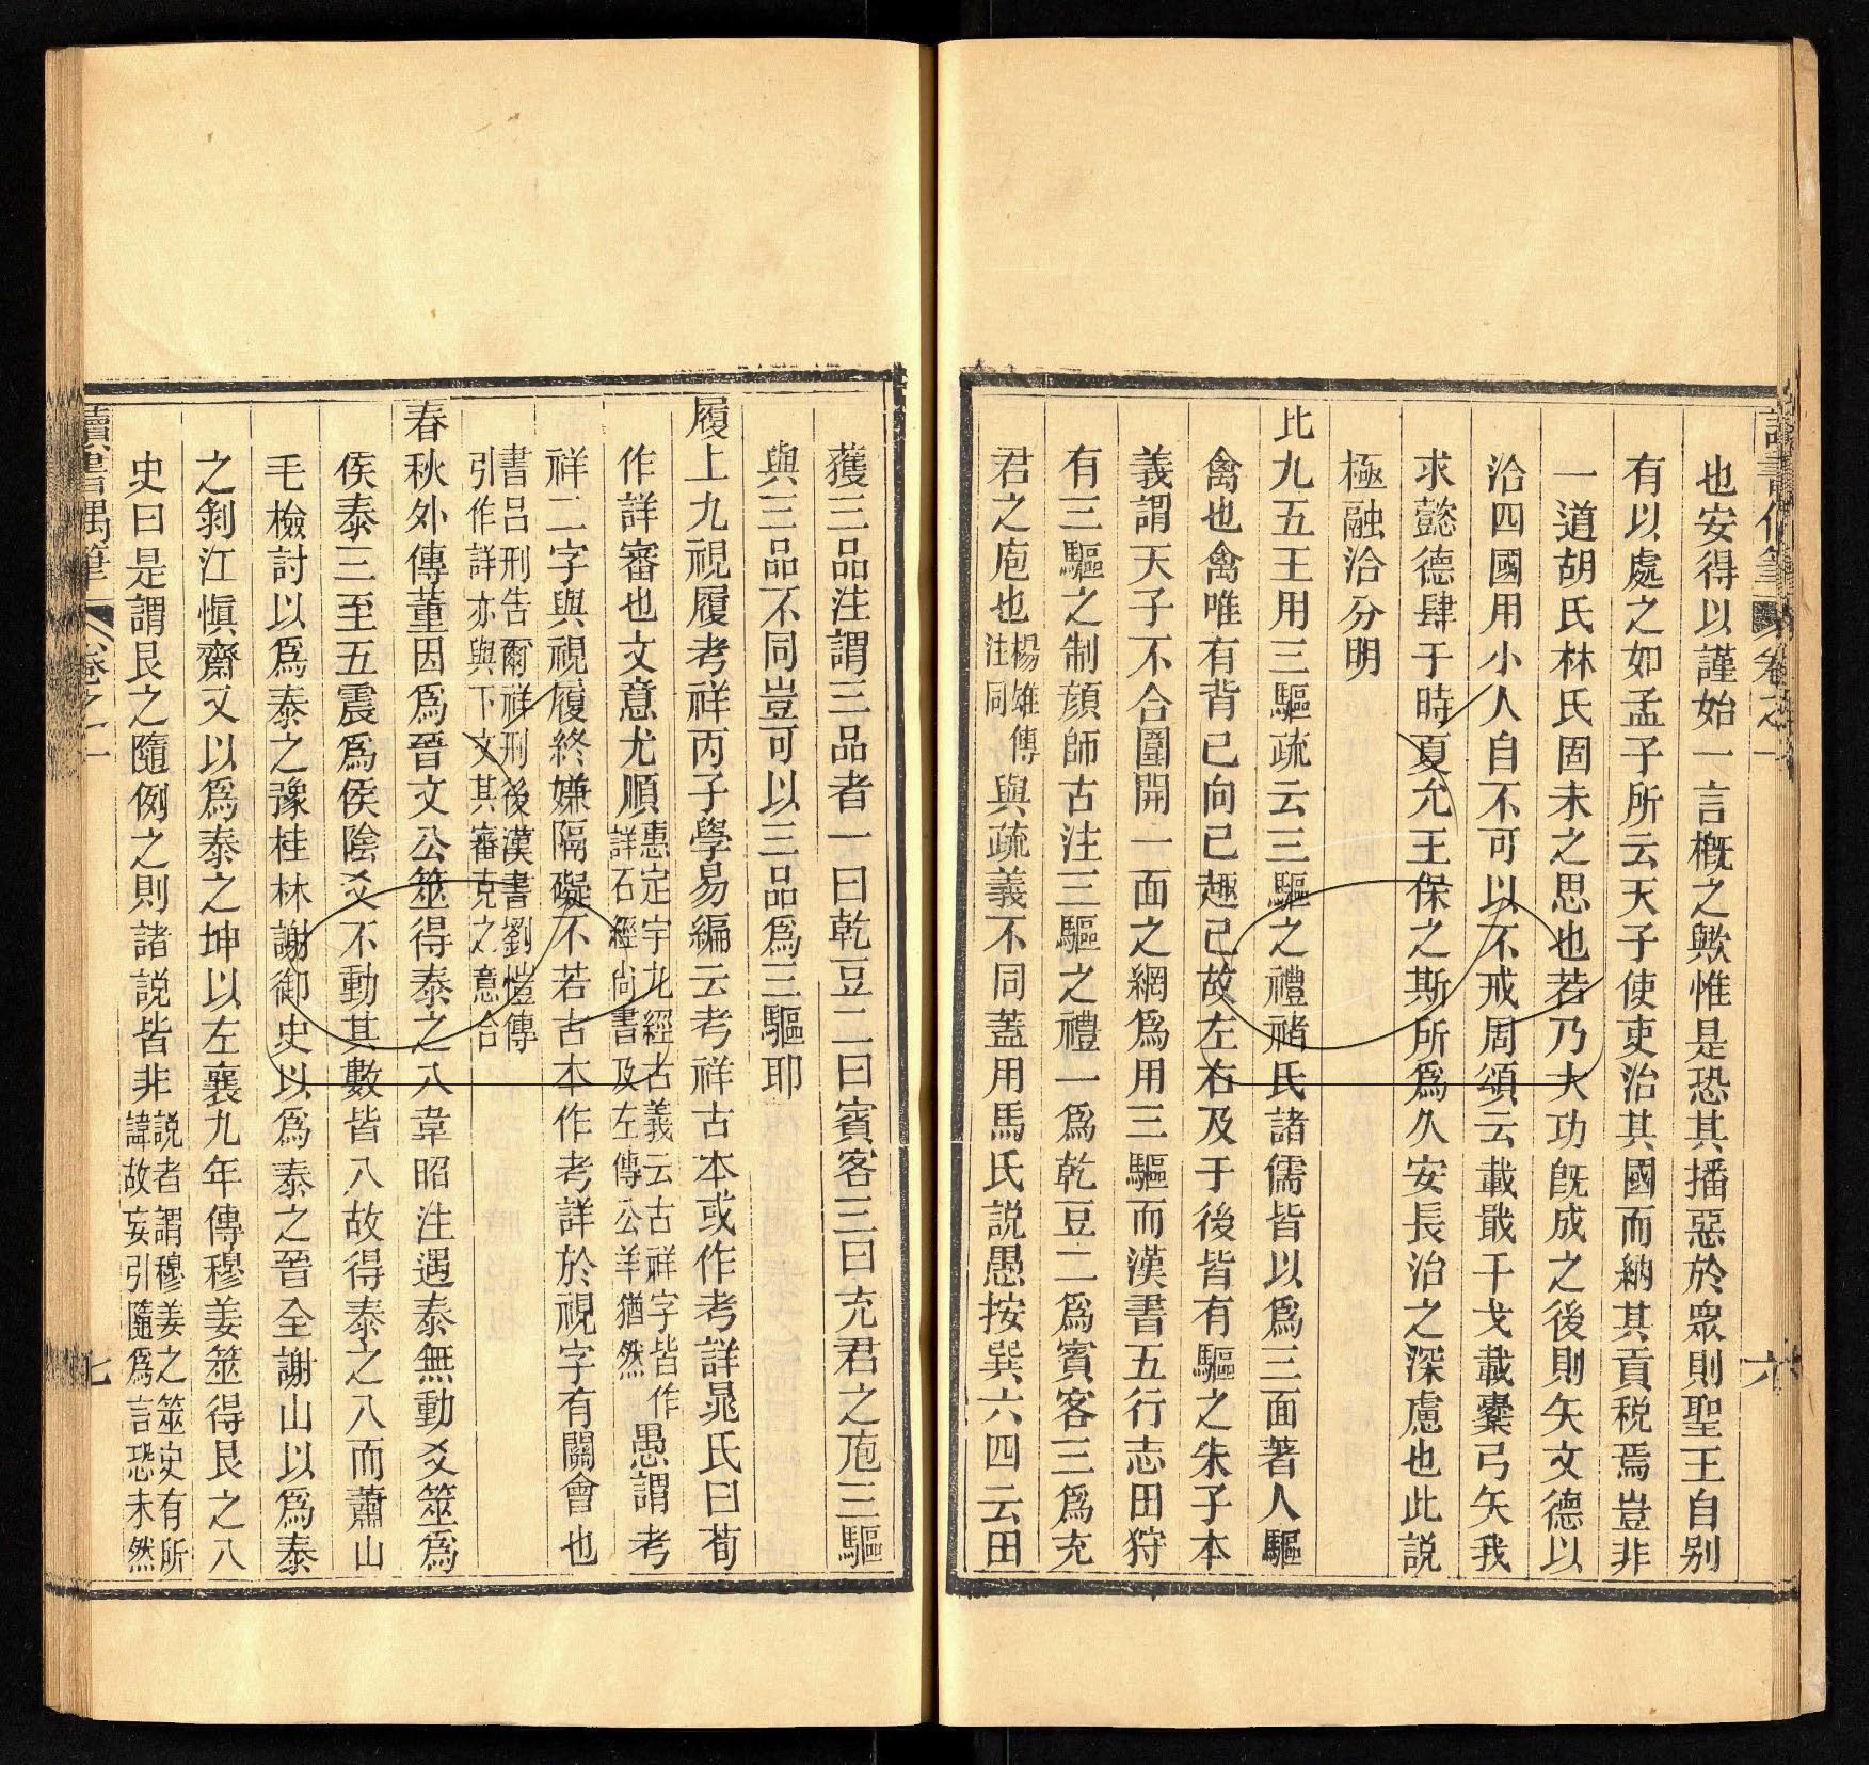 讀書偶筆 卷之一 六
也安得以謹始一言概之歟惟是恐其播惡於衆則聖王自别
有以處之如孟子所云天子使吏治其國而納其貢税焉豈非
一道胡氏林氏固未之思也若乃大功既成之後則矢文德以
洽四國用小人自不可以不戒周頌云載戢干戈載櫜弓矢我
求懿德肆于時夏允王保之斯所爲久安長治之深慮也此説
極融洽分明
比九五王用三驅疏云三驅之禮禇氏諸儒皆以爲三面著人驅
禽也禽唯有背己向己趣己故左右及于後皆有驅之朱子本
義謂天子不合圍開一面之網爲用三驅而漢書五行志田狩
有三驅之制顔師古注三驅之禮一爲乾豆二爲賓客三爲充
君之庖也楊雄傳注同與疏義不同蓋用馬氏説愚按巽六四云田
獲三品注謂三品者一曰乾豆二曰賓客三曰充君之庖三驅
與三品不同豈可以三品爲三驅耶
履上九視履考祥丙子學易編云考祥古本或作考詳晁氏曰荀
作詳審也文意尤順惠定宇九經古義云古祥字皆作詳石經尚書及左傳公羊猶然愚謂考
祥二字與視履終嫌隔礙不若古本作考詳於視字有關會也
書呂刑告爾祥刑後漢書劉愷傳引作詳亦與下文其審克之意合
春秋外傳董因爲晉文公筮得泰之八韋昭注遇泰無動爻筮爲
侯泰三至五震爲侯陰爻不動其數皆八故得泰之八而蕭山
毛檢討以爲泰之豫桂林謝御史以爲泰之晉全謝山以爲泰
之剝江愼齋又以爲泰之坤以左襄九年傳穆姜筮得艮之八
史曰是謂艮之隨例之則諸説皆非説者謂穆姜之筮史有所諱故妄引隨爲言恐未然
讀書偶筆 卷之一 七